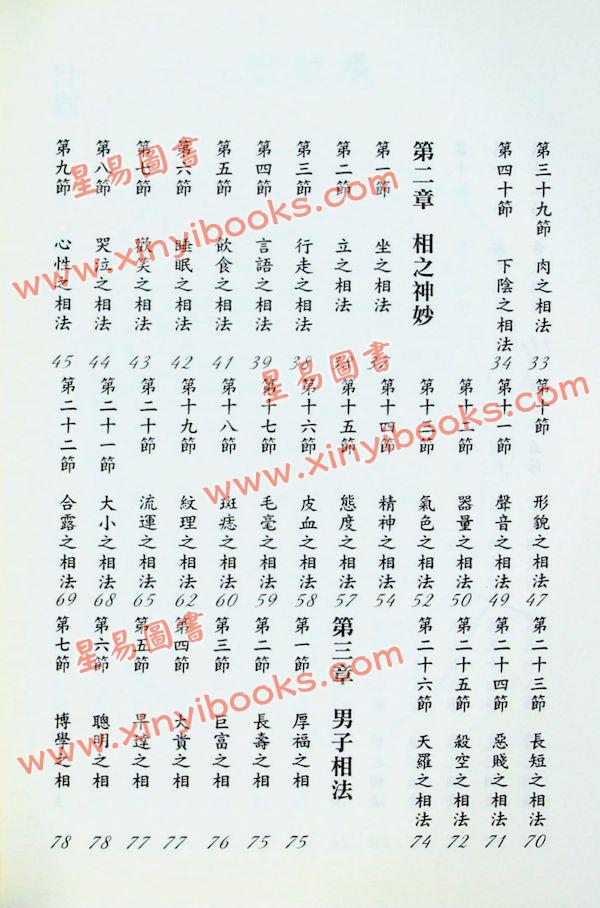 第三十九節 肉之相法 33
第四十節 下陰之相法 34
第二章 相之神妙
第一節 坐之相法 35
第二節 立之相法 38
第三節 行走之相法 38
第四節 言語之相法 39
第五節 飲食之相法 41
第六節 睡眠之相法 42
第七節 歡笑之相法 43
第八節 哭泣之相法 44
第九節 心性之相法 45
第十節 形貌之相法 47
第十一節 聲音之相法 49
第十二節 器量之相法 50
第十三節 氣色之相法 52
第十四節 精神之相法 54
第十五節 態度之相法 57
第十六節 皮血之相法 58
第十七節 毛毫之相法 59
第十八節 斑痣之相法 60
第十九節 紋理之相法 62
第二十節 流運之相法 65
第二十一節 大小之相法 68
第二十二節 合露之相法 69
第二十三節 長短之相法 70
第二十四節 惡賤之相法 71
第二十五節 殺空之相法 72
第二十六節 天羅之相法 74
第三章 男子相法
第一節 厚福之相 75
第二節 長壽之相 75
第三節 巨富之相 76
第四節 大貴之相 77
第五節 早達之相 77
第六節 聰明之相 78
第七節 博學之相 78
星易圖書
www.xinyibooks.com
星易圖書
www.xinyibooks.com
星易圖書
www.xinyibooks.com